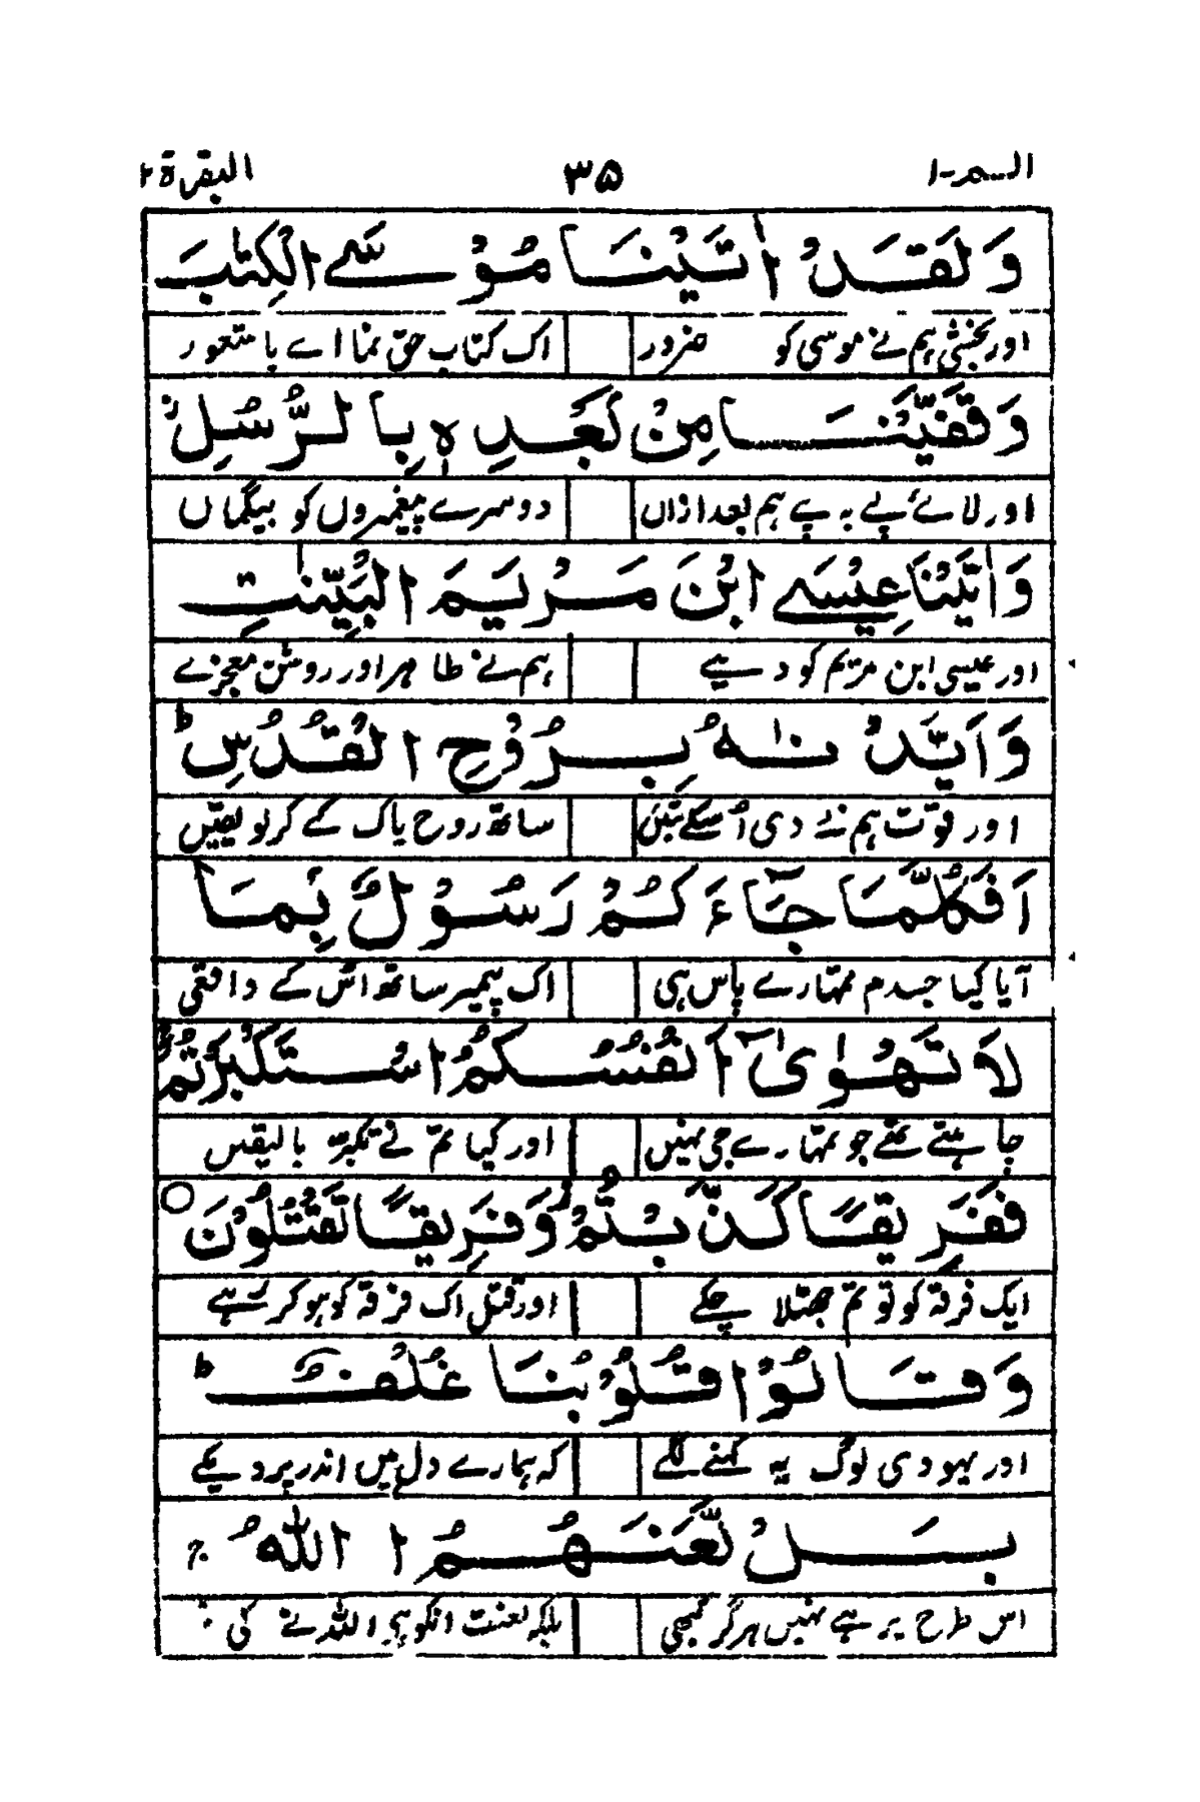 الـــمـ-۱ ۳۵ البقرة ۲
وَلَقَدْ اٰتَيْنَا مُوْسَے الْكِتٰبَ
اور بخشی ہم نے موسی کو ضرور اک کتاب حق نما اے باشعور
وَقَفَّيْنَا مِنْۢ بَعْدِهٖ بِالرُّسُلِ ز
اور لائے پے بہ پے ہم بعد ازاں دوسرے پیغمبروں کو بیگماں
وَاٰتَيْنَا عِيْسَے ابْنَ مَرْيَمَ الْبَيِّنٰتِ
اور عیسی ابن مریم کو دیے ہم نے ظاہر اور روشن معجزے
وَاَيَّدْنٰهُ بِرُوْحِ الْقُدُسِ ط
اور قوّت ہم نے دی اُسکے تئیں ساتھ روح پاک کے کر لو یقیں
اَفَكُلَّمَا جَآءَكُمْ رَسُوْلٌۢ بِمَا
آیا کیا جسدم تمہارے پاس ہی اک پیمبر ساتھ اُس کے واقعی
لَا تَهْوٰىٓ اَنْفُسُكُمُ اسْتَكْبَرْتُمْ ج
چاہتے تھے جو تمہارے جی نہیں اور کیا تم نے تکبّر بالیقیں
فَفَرِيْقًا كَذَّبْتُمْ ز وَفَرِيْقًا تَقْتُلُوْنَ ○
ایک فرقہ کو تو تم جھٹلا چکے اور قتل اک فرقہ کو ہو کر رہے
وَقَالُوْا قُلُوْبُنَا غُلْفٌ ط
اور یہودی لوگ یہ کہنے لگے کہ ہمارے دل ہیں اندر پردے کے
بَلْ لَّعَنَهُمُ اللّٰهُ
اس طرح پر ہے نہیں ہرگز کبھی بلکہ لعنت انکو ہی اللہ نے کی